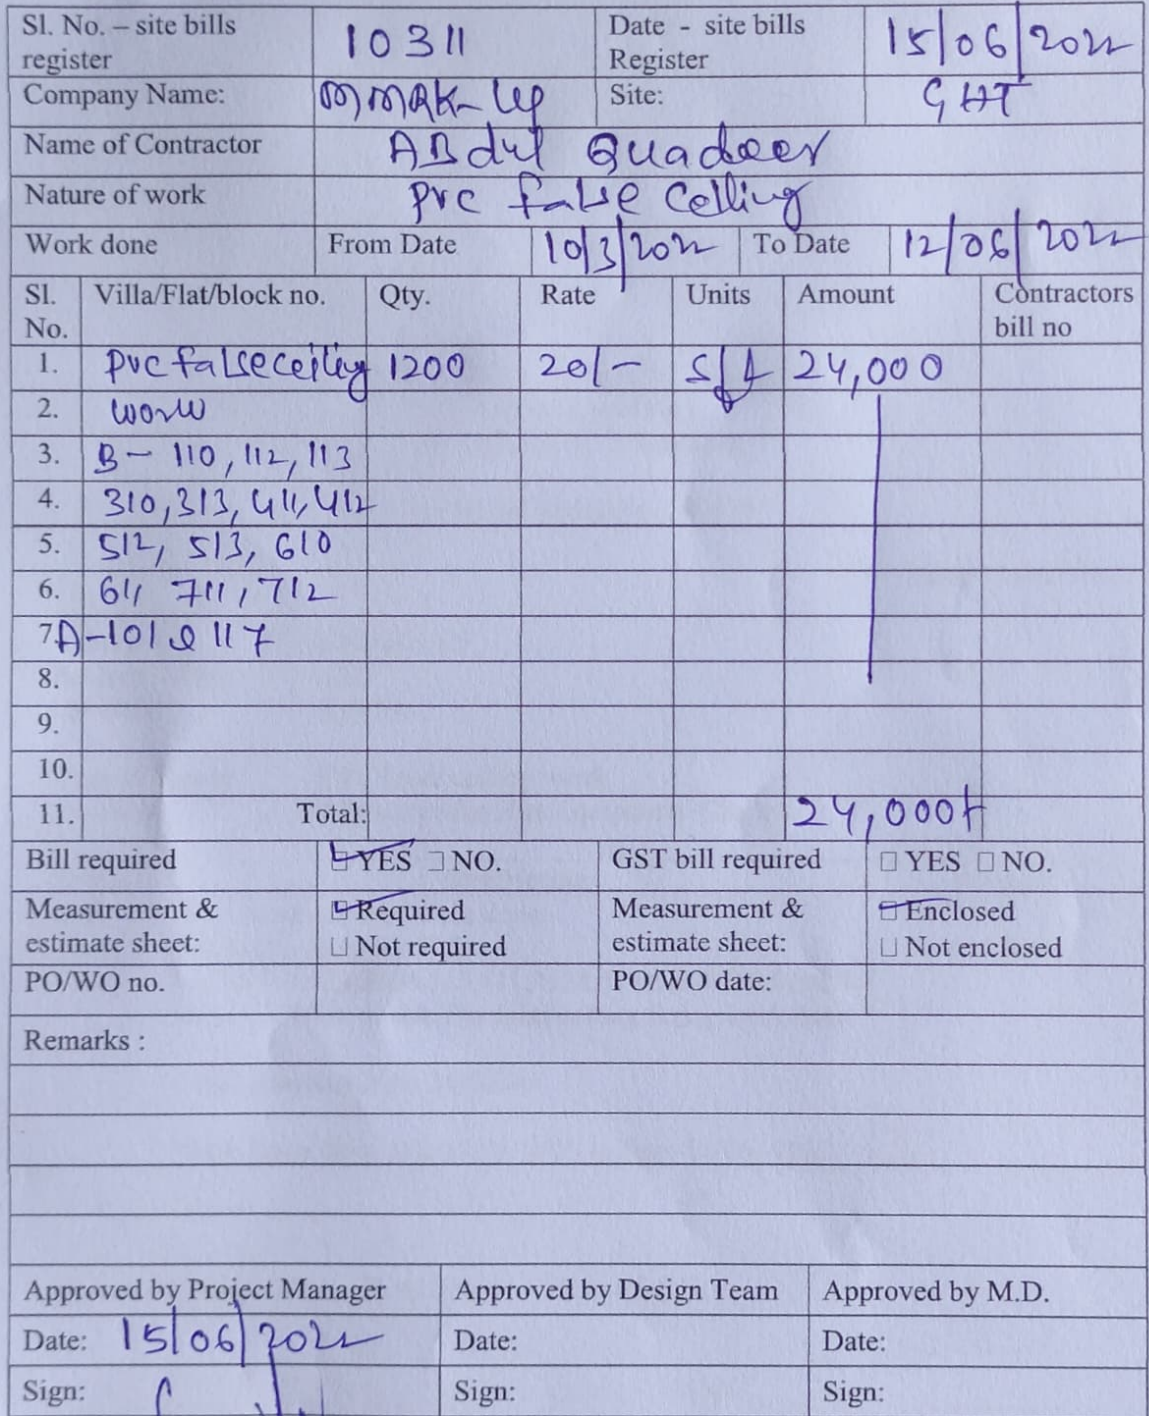 Sl. No. – site bills register 10311 Date - site bills Register 15/06/2022
Company Name: Site: GHT
Name of Contractor ABdul Quadeer
Nature of work Pvc false Celling
Work done From Date 10/3/2022 To Date 12/06/2022
Sl. No. Villa/Flat/block no. Qty. Rate Units Amount Contractors bill no
1. Pvc falseceiling 1200 20/- sft 24,000
2. work
3. B- 110, 112, 113
4. 310, 313, 411, 412
5. 512, 513, 610
6. 611 711, 712
7. A-101 & 117
8.
9.
10.
11. Total: 24,000/-
Bill required YES NO. GST bill required YES NO.
Measurement & estimate sheet: Required Not required Measurement & estimate sheet: Enclosed Not enclosed
PO/WO no. PO/WO date:
Remarks :
Approved by Project Manager Approved by Design Team Approved by M.D.
Date: 15/06/2022 Date: Date:
Sign: Sign: Sign: